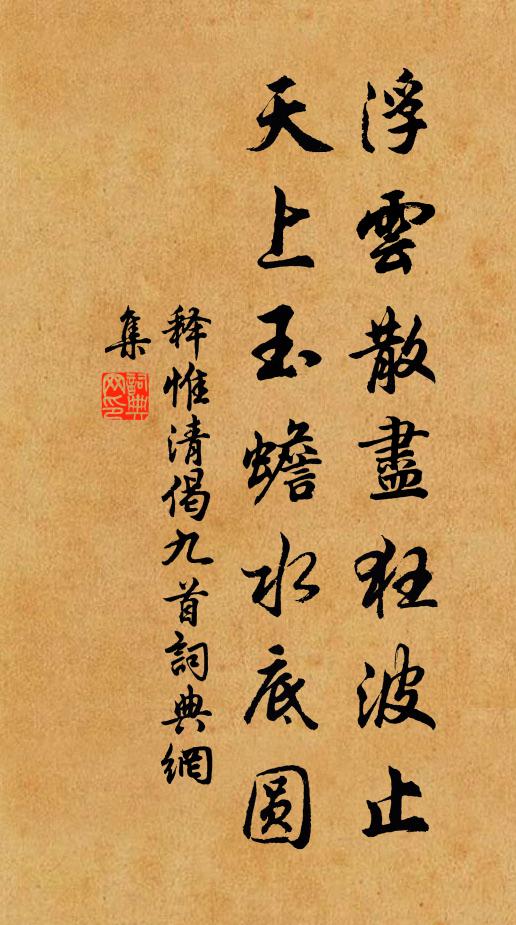 浮雲散盡狂波止
天上玉蟾水底圆
释惟清偈九首詞典網
集
詞典
网印